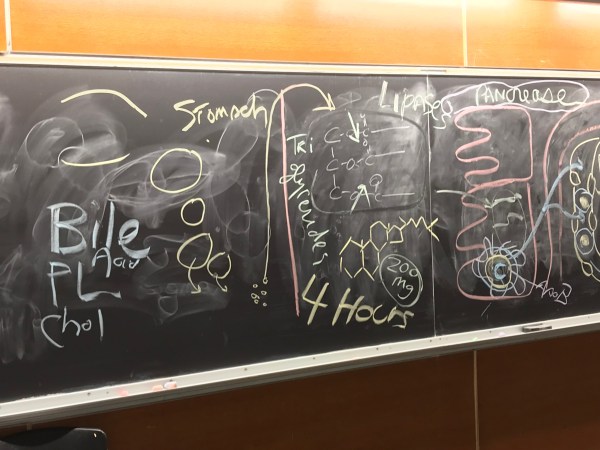 Stomach
Bile
Acid
PL
Chol
Tri
glycerides
Lipases
PANCREASE
C-O-C
C-O-C
C-O-C
200
mg
4 Hours
ApoB